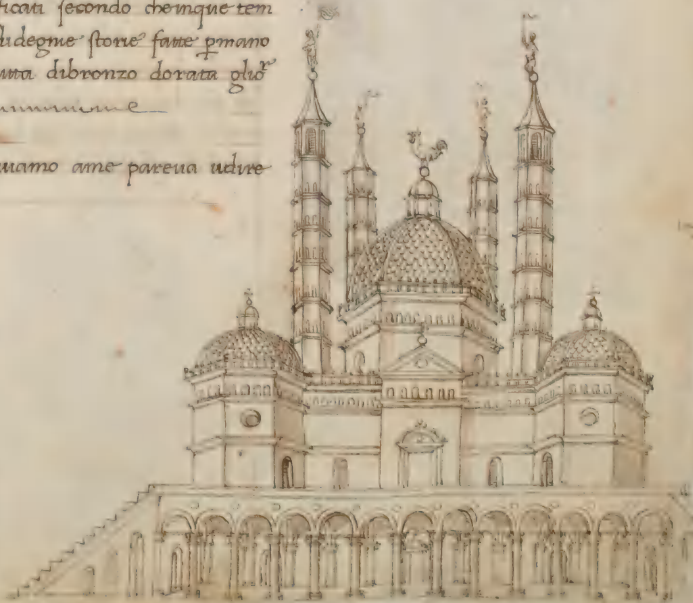 ficati secondo cheinque tem
di degnie storie fatte pmano
dibronzo dorata
uamo ame pareua udire